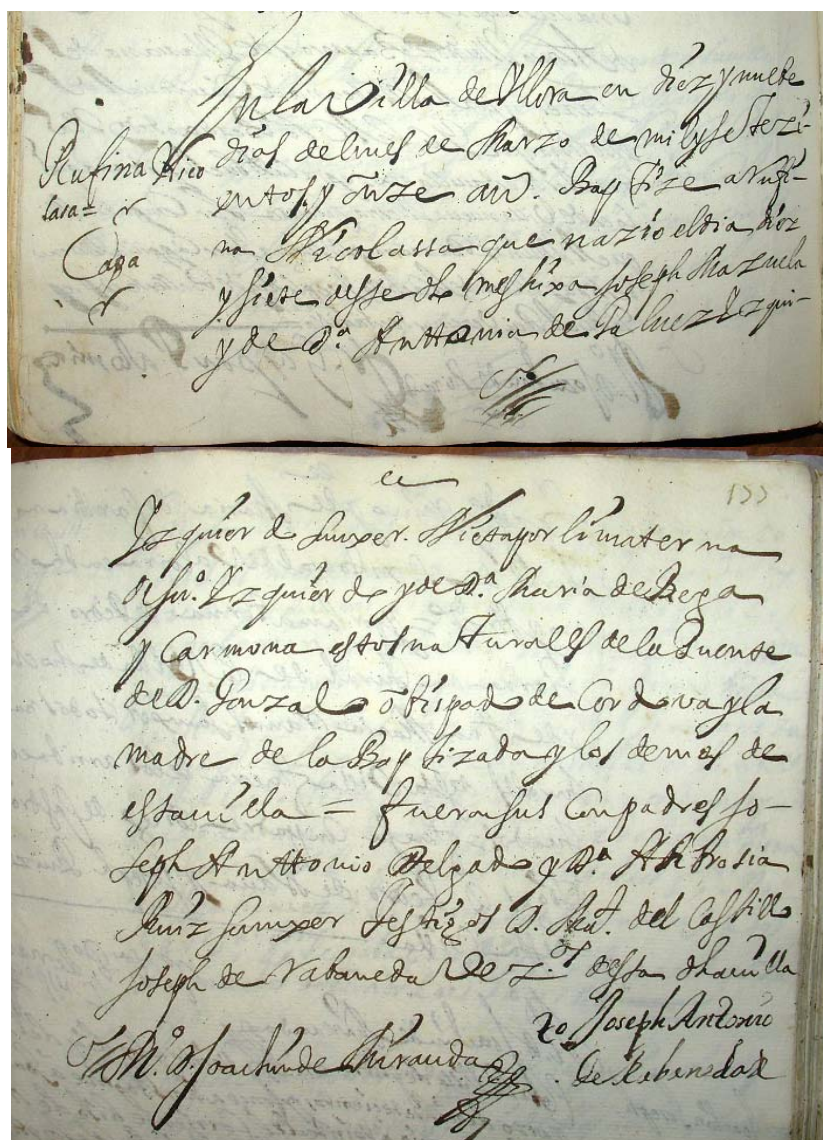 En la Villa de Yllora en diez y nuebe
Rufina Nico
lasa =
dias del mes de Marzo de mil y setezi-
entos y onze años. Baptize a Rufi-
na Nicolassa que nazio el dia diez
y siete desse dho mes hixa Joseph Mazuela
y de Dª. Anttonia de Palma Yzqui-
133
Yzquierdo su muxer. Nieta por linia materna
de Juº. Yzquierdo y de Dª. Maria de Bega
y Carmona estos naturales de la Puente
de D. Gonzalo obispado de Cordova y la
madre de la Baptizada y los demas de
esta villa = fueron sus Conpadres Jo-
seph Anttonio Delgado y Dª. Anbrosia
Ruiz su muxer Testigos D. del Castillo
Joseph de Rabaneda Vezºˢ desta dha villa
Joseph Antonio
Mº. D. Joachin de Miranda